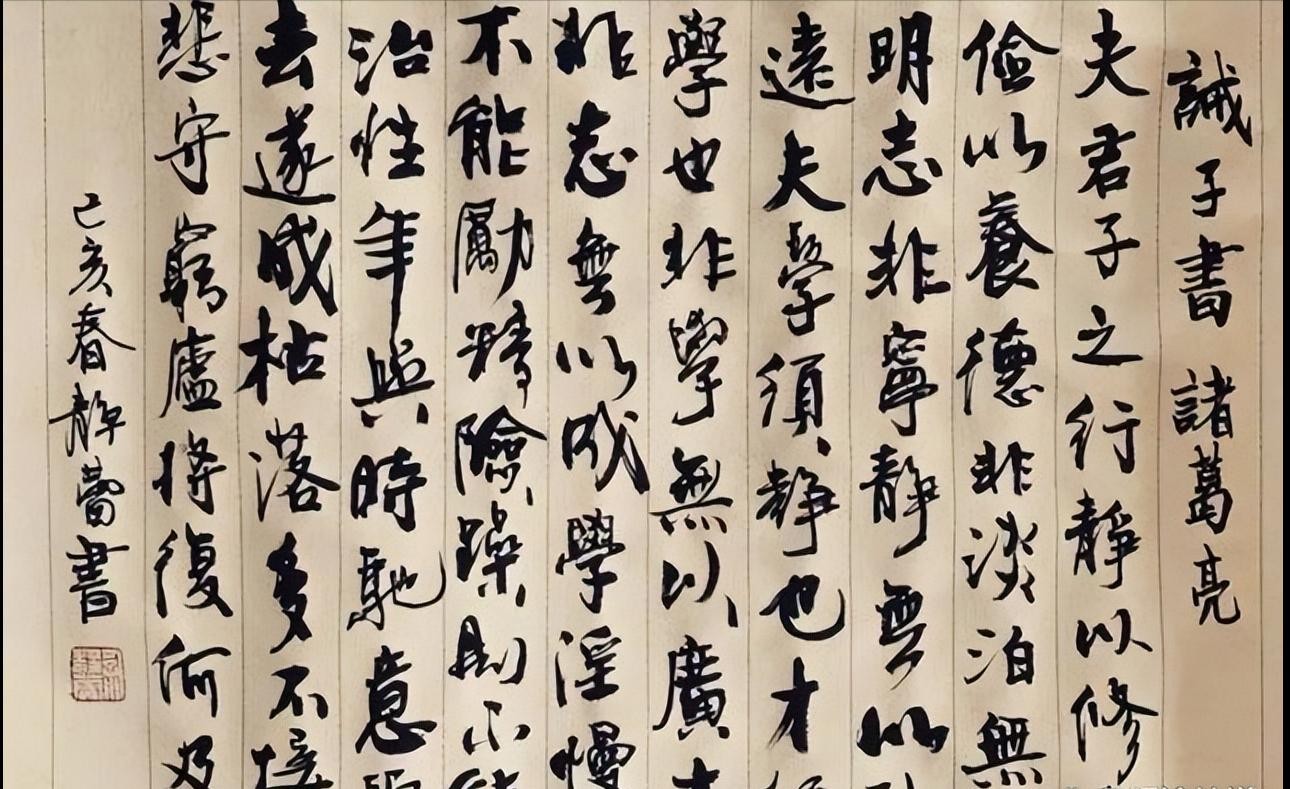 誡子書 諸葛亮
夫君子之行靜以修
儉以養德非淡泊無
明志非寧靜無以
遠夫學須靜也才
學也非學無以廣
非志無以成學淫慢
不能勵精險躁則不
治性年與時馳意
去遂成枯落多不接
悲守窮廬將復何及
己亥春靜蕾書